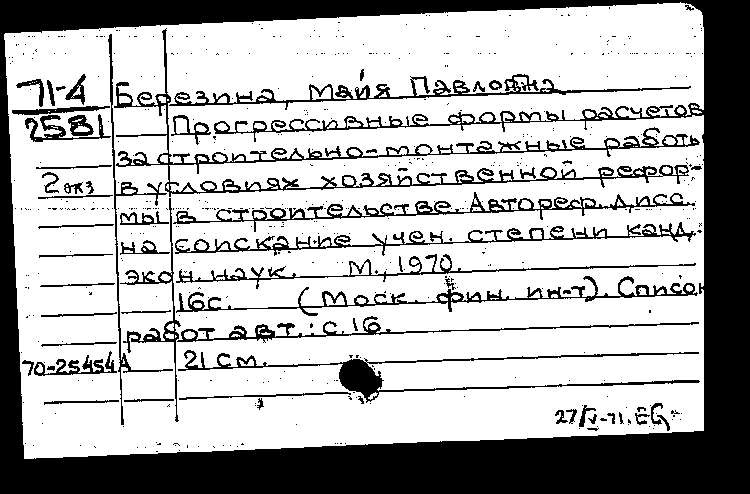 71-4 Березина, Майя Павловна
2581 Прогрессивные формы расчетов
за строительно-монтажные работы
2 экз в условиях хозяйственной рефор-
мы в строительстве. Автореф. дисс.
на соискание учен. степени канд.
экон. наук. М., 1970.
16с. (Моск. фин. ин-т). Список
работ авт.: с.16.
70-25454А 21 см.
27/V-71. EG